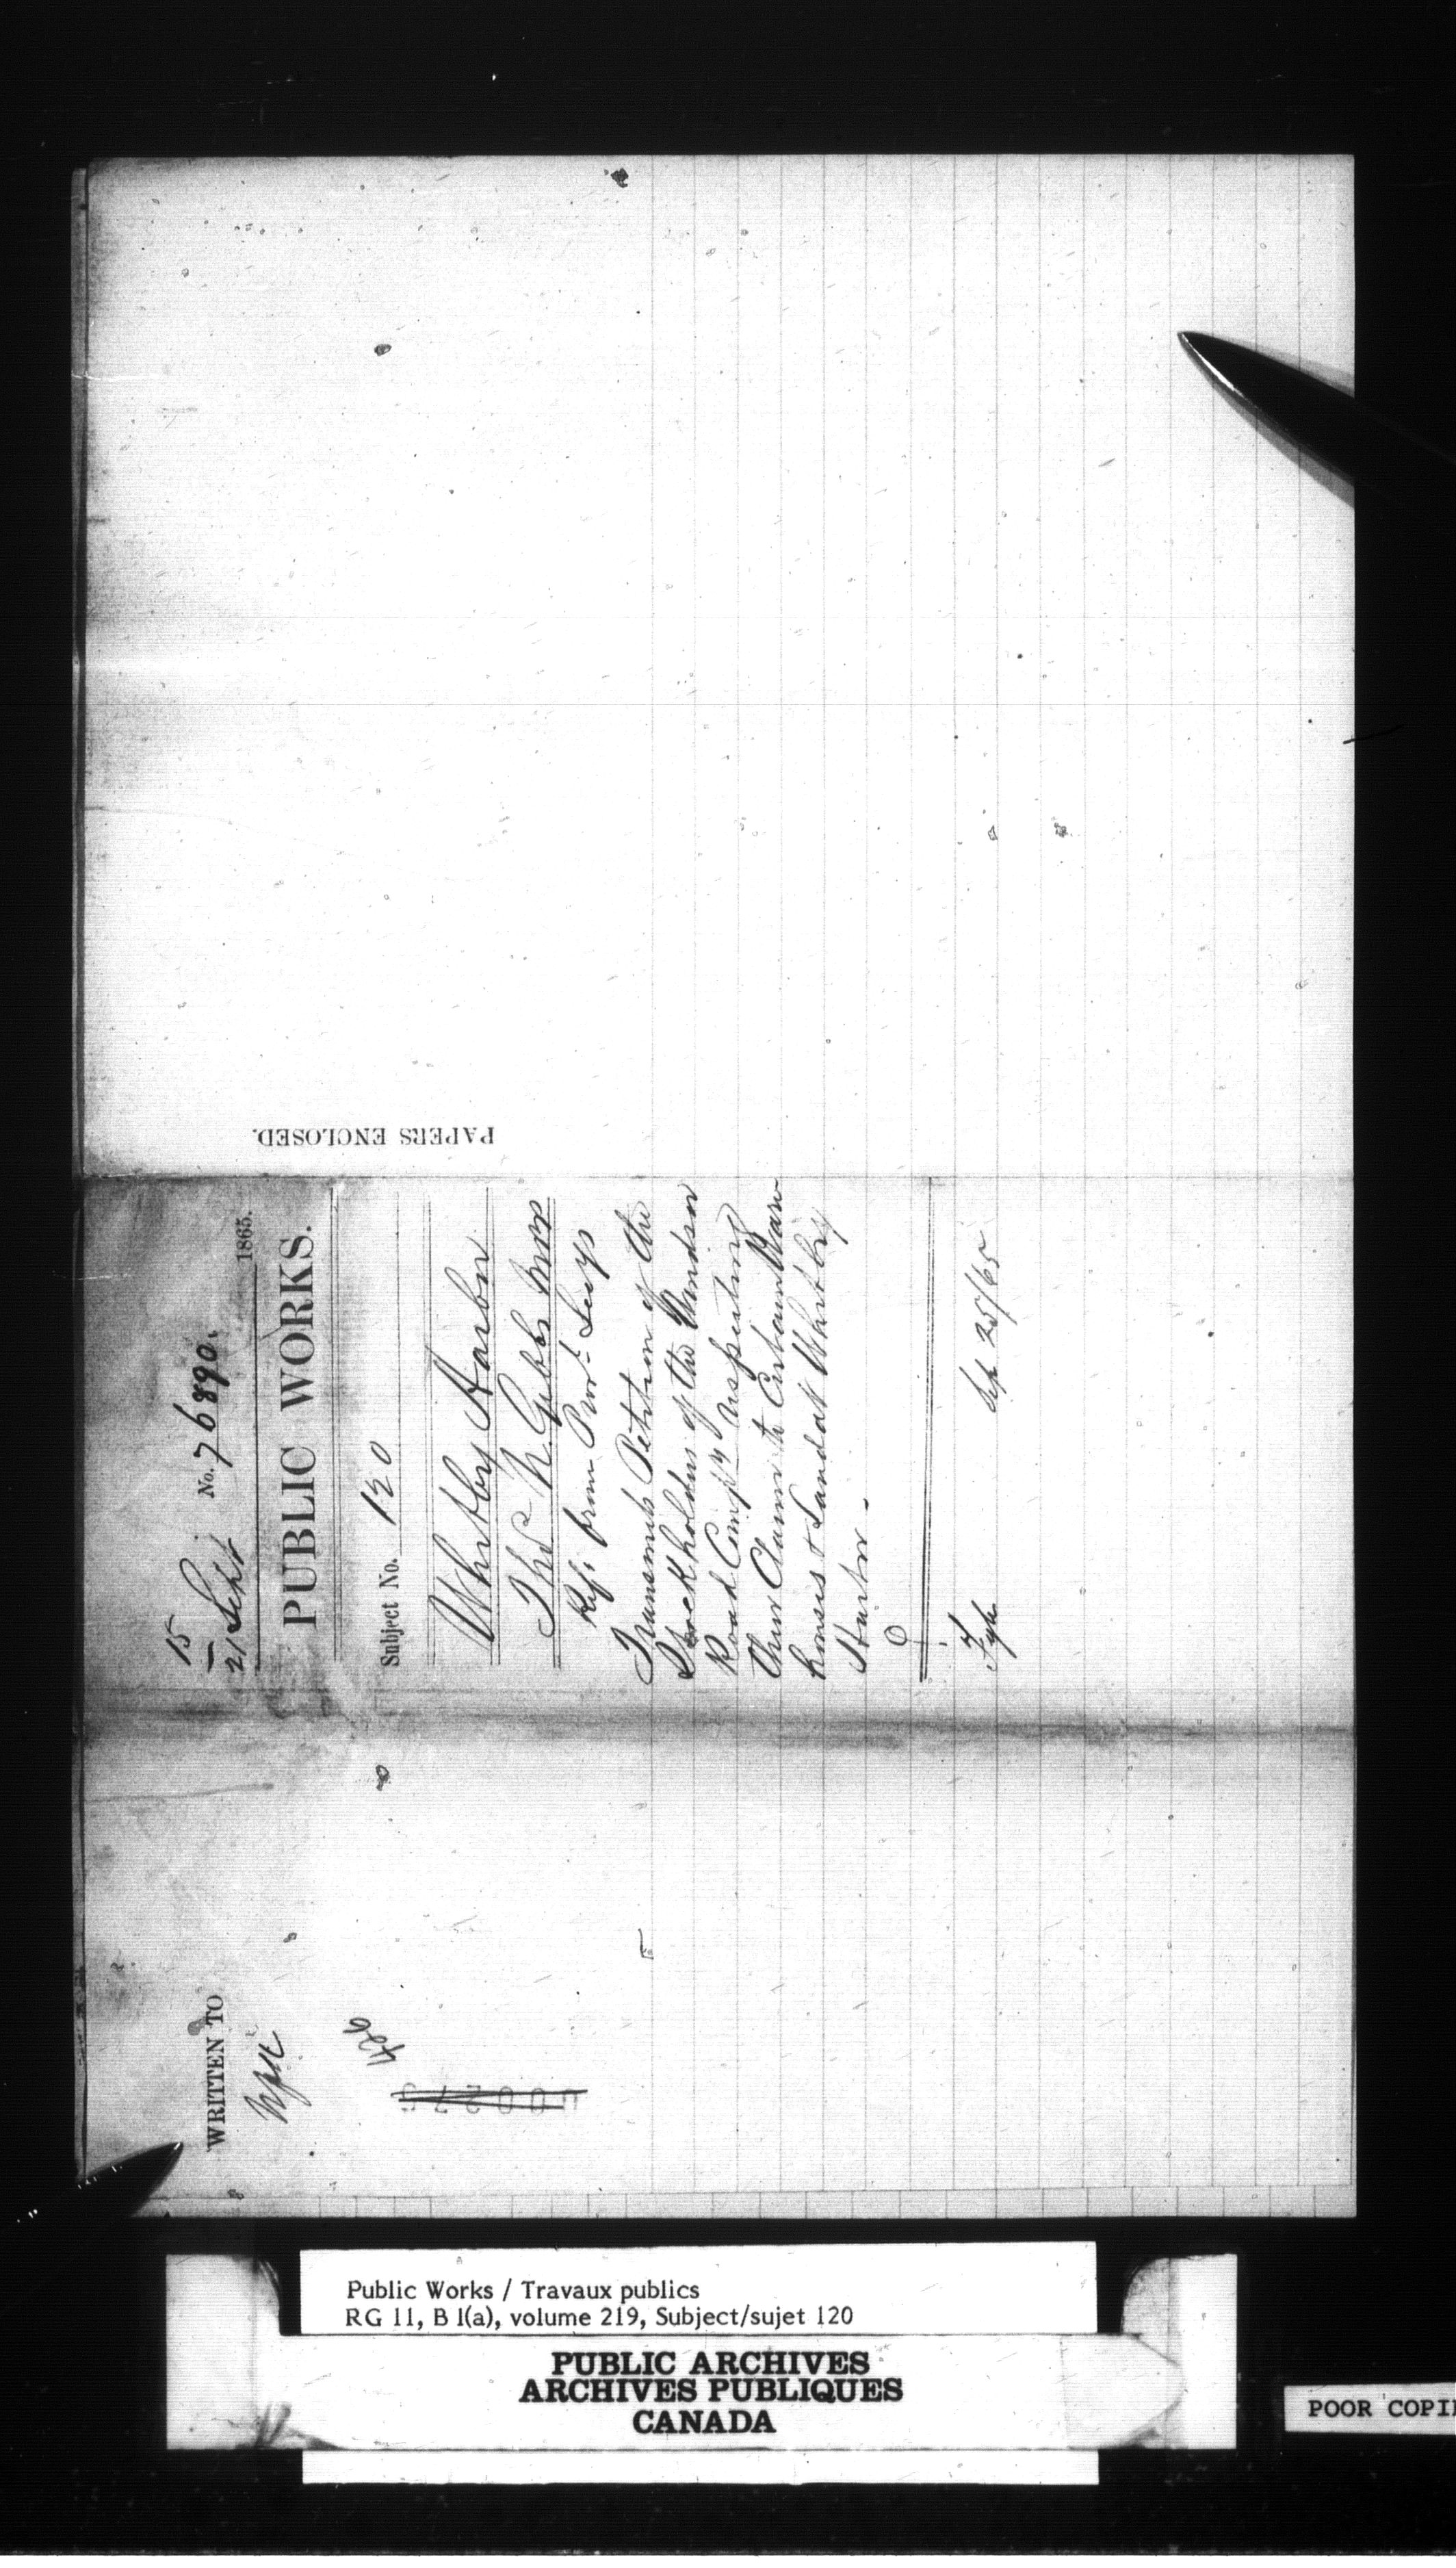 PAPERS ENCLOSED.
15
21 Sept No. 76890. 1865.
PUBLIC WORKS.
Subject No. 120
Whitby Harbor
Thos N Gibbs MPP
Ref. from Prov.l Secy
Transmits Petition of the
Stockholders of the Windsor
Road Comp.y respecting
their Claim to Certain Ware
houses & Land at Whitby
Harbor -
Fyle Sep 25/65
WRITTEN TO
426
000275
Public Works / Travaux publics
RG 11, B 1(a), volume 219, Subject/sujet 120
PUBLIC ARCHIVES
ARCHIVES PUBLIQUES
CANADA
POOR COPI